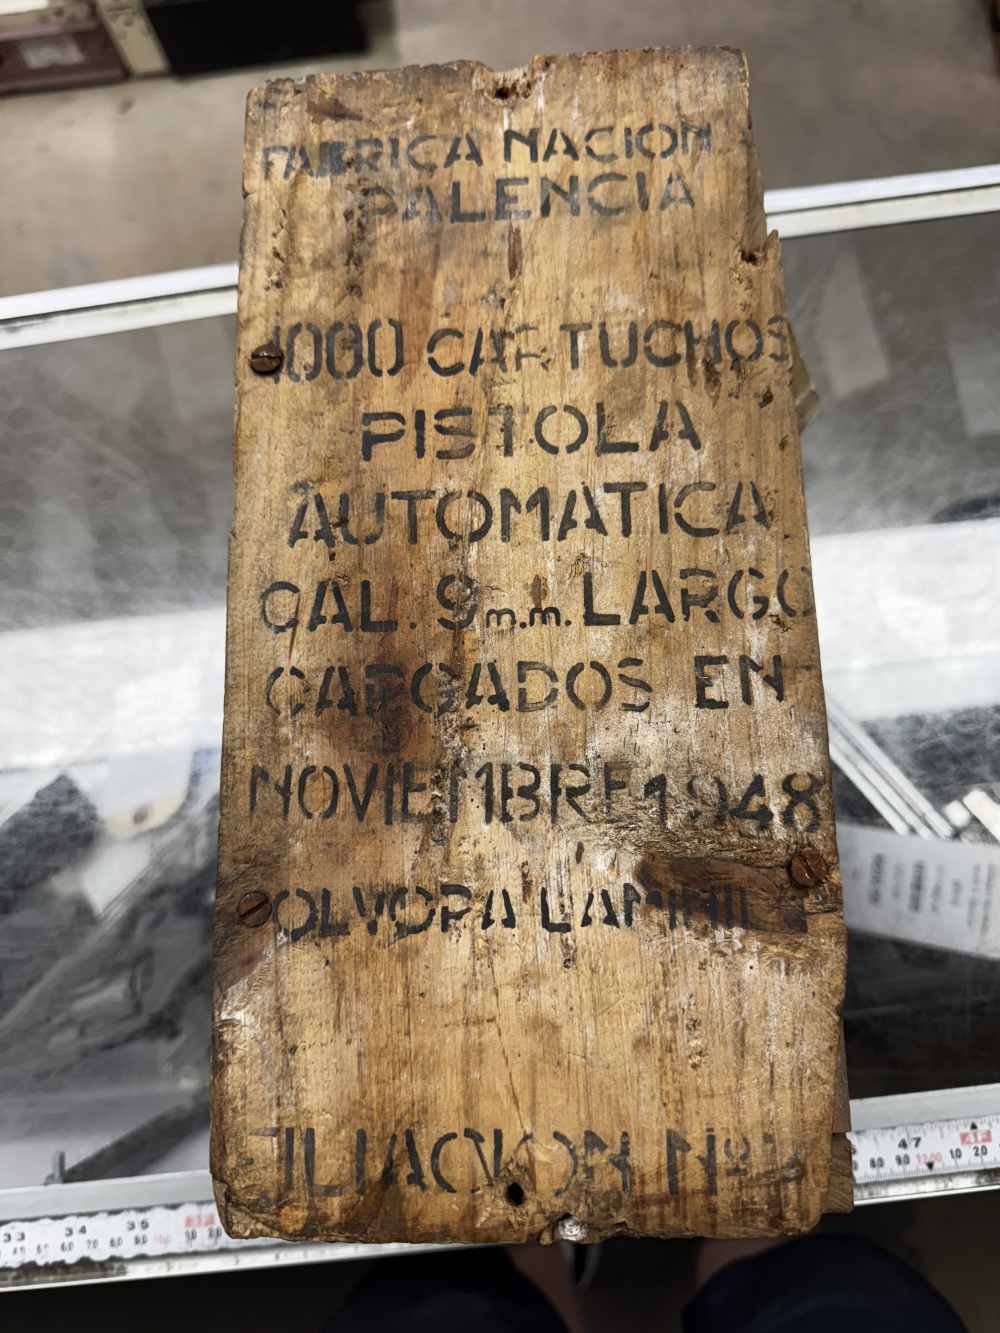 FABRICA NACION
PALENCIA
1000 CARTUCHOS
PISTOLA
AUTOMATICA
CAL. 9 m.m. LARGO
CARGADOS EN
NOVIEMBRE 1948
POLVORA LAMINIL
FILIACION Nº
33 34 35
47